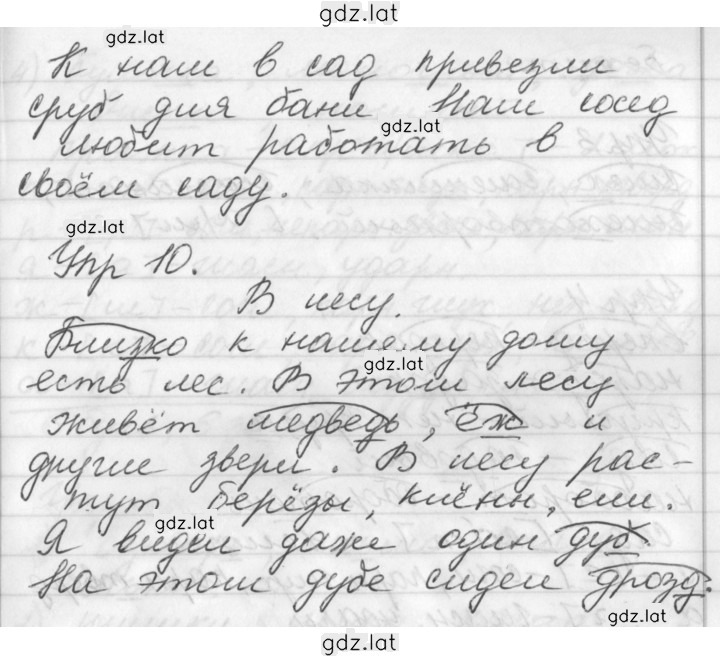 gdz.lat
gdz.lat
К нам в сад привезли
сруб для бани. Наш сосед
gdz.lat
любит работать в
своём саду.
gdz.lat
Упр 10.
В лесу.
Близко к нашему дому
gdz.lat
есть лес. В этом лесу
живёт медведь, ёж и
другие звери. В лесу рас-
тут берёзы, клёны, ели.
gdz.lat
Я видел даже один дуб.
На этом дубе сидел дрозд.
gdz.lat
gdz.lat